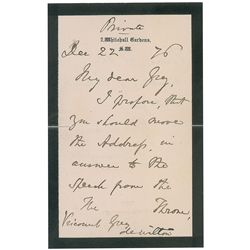 Private
2, Whitehall Gardens,
S.W.
Dec 22 76
My dear Grey,
I propose, that
you should move
the Address, in
answer to the
Speech from the
The Throne,
Viscount Grey
de Wilton